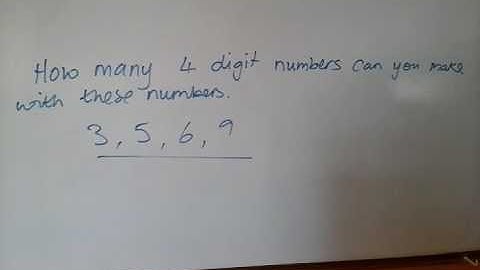 How many 4 digit numbers can you make
with these numbers.
3, 5, 6, 9